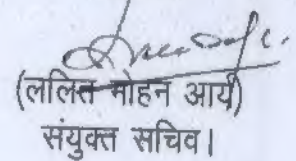 (ललित मोहन आर्य)
संयुक्त सचिव।